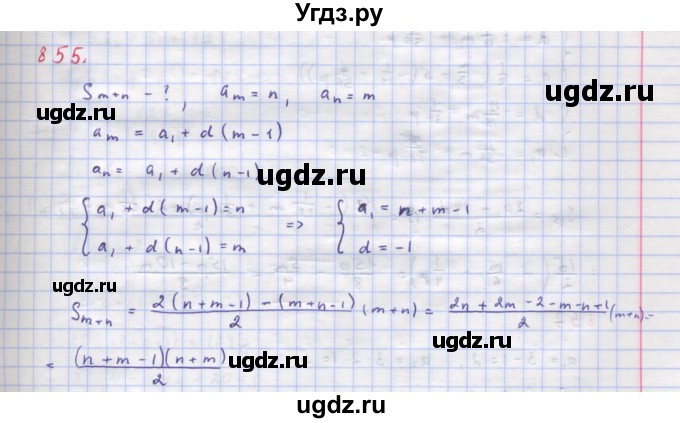 Угдз.ру
855.
S_{m+n} - ?, a_m = n, a_n = m
ugdz.ru ugdz.ru
a_m = a_1 + d(m-1)
a_n = a_1 + d(n-1)
ugdz.ru
{ a_1 + d(m-1) = n => { a_1 = n+m-1
{ a_1 + d(n-1) = m { d = -1
ugdz.ru ugdz.ru
S_{m+n} = \frac{2(n+m-1)-(m+n-1)}{2}(m+n) = \frac{2n+2m-2-m-n+1}{2}(m+n) =
ugdz.ru
= \frac{(n+m-1)(n+m)}{2}
ugdz.ru
ugdz.ru